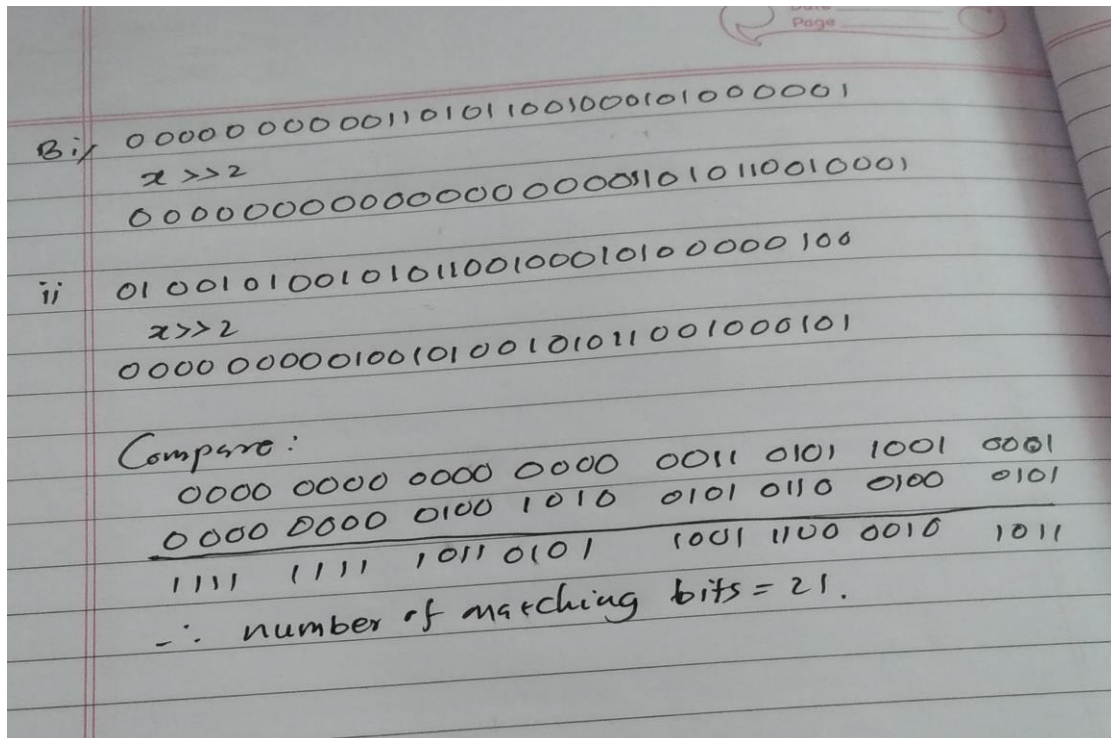 Page
Bi) 00000000001101011001000101000001
x >> 2
00000000000000000011010110010001
ii 01001010010101100100010100000100
x>>2
00000000010010100101011001000101
Compare:
0000 0000 0000 0000 0011 0101 1001 0001
0000 0000 0100 1010 0101 0110 0100 0101
1111 1111 1011 0101 1001 1100 0010 1011
∴ number of matching bits = 21.